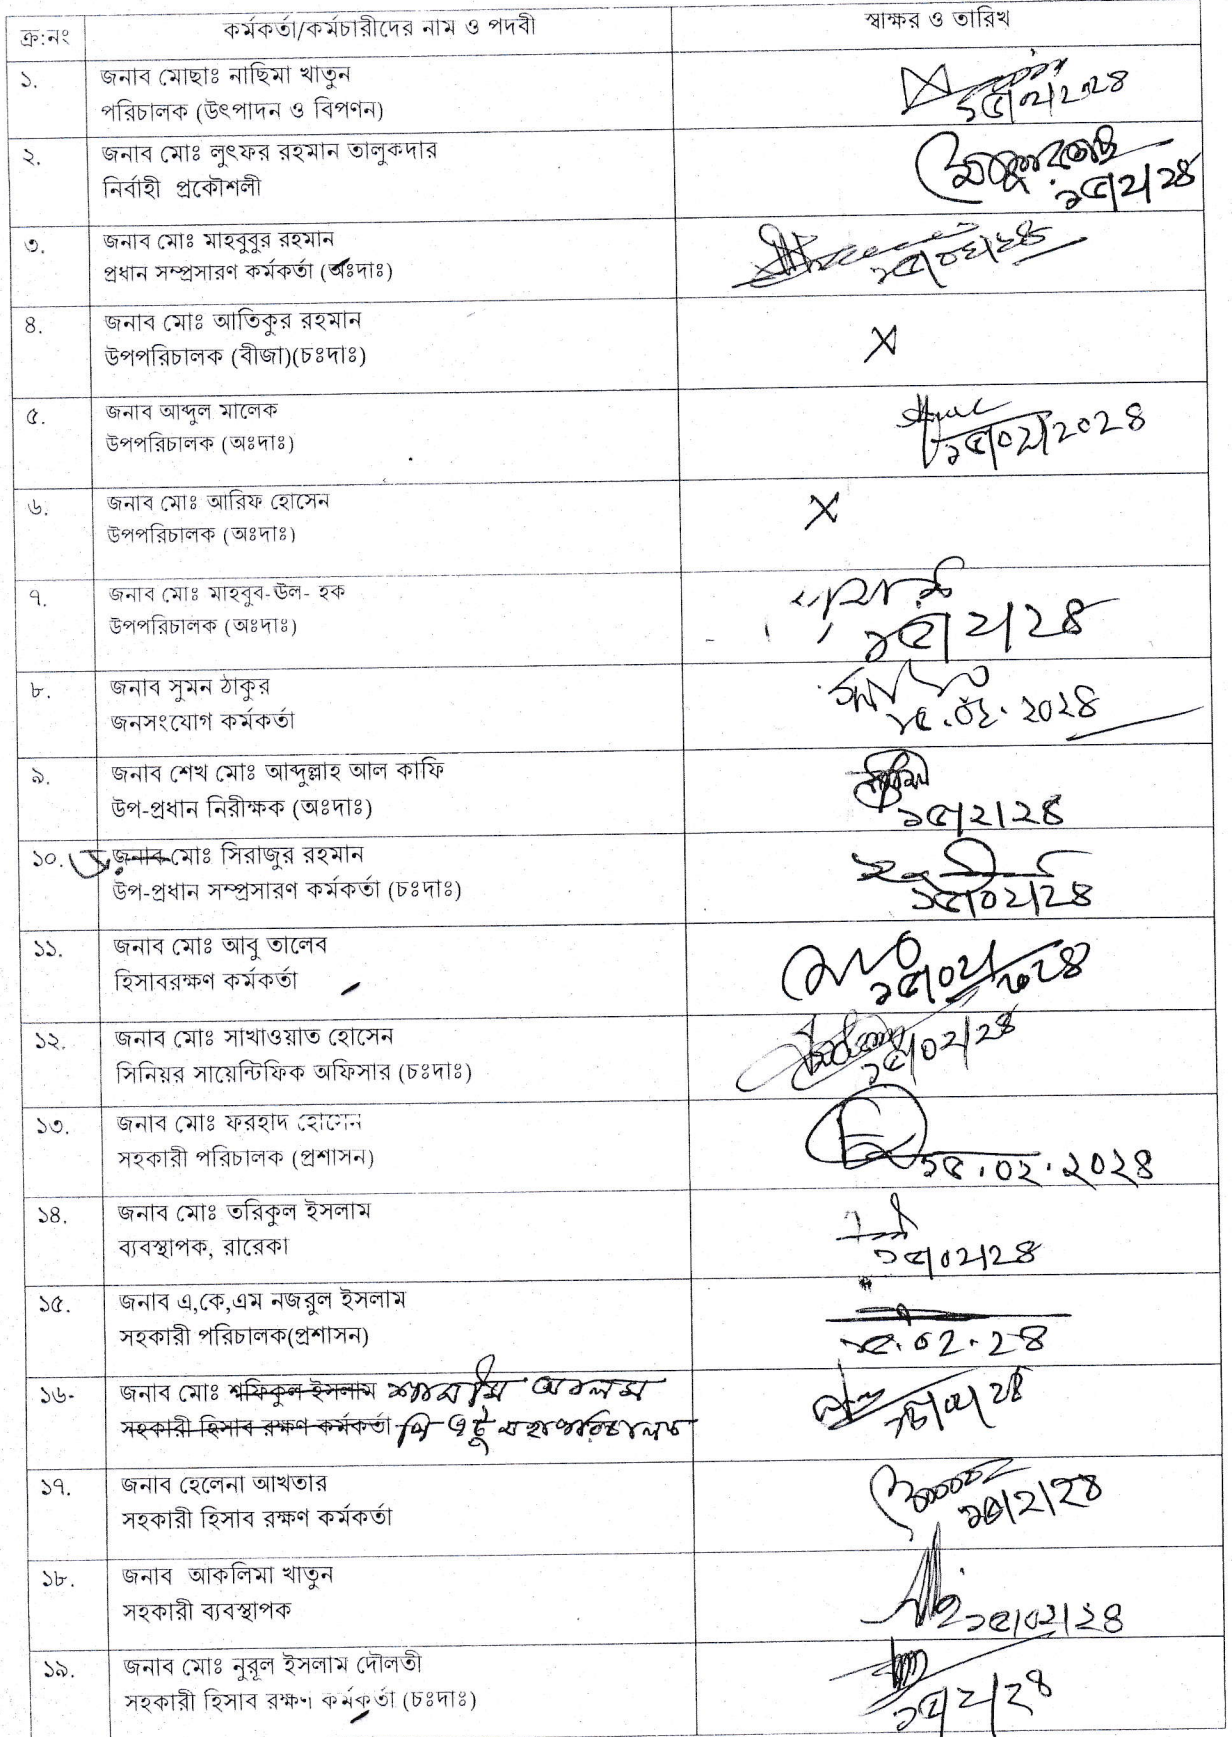 ক্র:নং কর্মকর্তা/কর্মচারীদের নাম ও পদবী স্বাক্ষর ও তারিখ
১. জনাব মোছাঃ নাছিমা খাতুন
পরিচালক (উৎপাদন ও বিপণন)
১৫/০২/২০২৪
২. জনাব মোঃ লুৎফর রহমান তালুকদার
নির্বাহী প্রকৌশলী
১৫/২/২৪
৩. জনাব মোঃ মাহবুবুর রহমান
প্রধান সম্প্রসারণ কর্মকর্তা (অঃদাঃ)
১৫/০২/২৪
৪. জনাব মোঃ আতিকুর রহমান
উপপরিচালক (বীজা)(চঃদাঃ)
X
৫. জনাব আব্দুল মালেক
উপপরিচালক (অঃদাঃ)
১৫/০২/২০২৪
৬. জনাব মোঃ আরিফ হোসেন
উপপরিচালক (অঃদাঃ)
X
৭. জনাব মোঃ মাহবুব-উল- হক
উপপরিচালক (অঃদাঃ)
১৫/২/২৪
৮. জনাব সুমন ঠাকুর
জনসংযোগ কর্মকর্তা
১৫.০২.২০২৪
৯. জনাব শেখ মোঃ আব্দুল্লাহ আল কাফি
উপ-প্রধান নিরীক্ষক (অঃদাঃ)
১৫/২/২৪
১০. জনাব মোঃ সিরাজুর রহমান
উপ-প্রধান সম্প্রসারণ কর্মকর্তা (চঃদাঃ)
১৫/০২/২৪
১১. জনাব মোঃ আবু তালেব
হিসাবরক্ষণ কর্মকর্তা
১৫/০২/২০২৪
১২. জনাব মোঃ সাখাওয়াত হোসেন
সিনিয়র সায়েন্টিফিক অফিসার (চঃদাঃ)
১৫/০২/২৪
১৩. জনাব মোঃ ফরহাদ হোসেন
সহকারী পরিচালক (প্রশাসন)
১৫.০২.২০২৪
১৪. জনাব মোঃ তরিকুল ইসলাম
ব্যবস্থাপক, রারেকা
১৫/০২/২৪
১৫. জনাব এ,কে,এম নজরুল ইসলাম
সহকারী পরিচালক(প্রশাসন)
১৫.০২.২৪
১৬- জনাব মোঃ শফিকুল ইসলাম শামীম আলম
সহকারী হিসাব রক্ষণ কর্মকর্তা পি এ টু মহাপরিচালক
১৫/০২/২৪
১৭. জনাব হেলেনা আখতার
সহকারী হিসাব রক্ষণ কর্মকর্তা
১৫/২/২৪
১৮. জনাব আকলিমা খাতুন
সহকারী ব্যবস্থাপক
১৫/০২/২৪
১৯. জনাব মোঃ নুরূল ইসলাম দৌলতী
সহকারী হিসাব রক্ষণ কর্মকর্তা (চঃদাঃ)
১৫/২/২৪